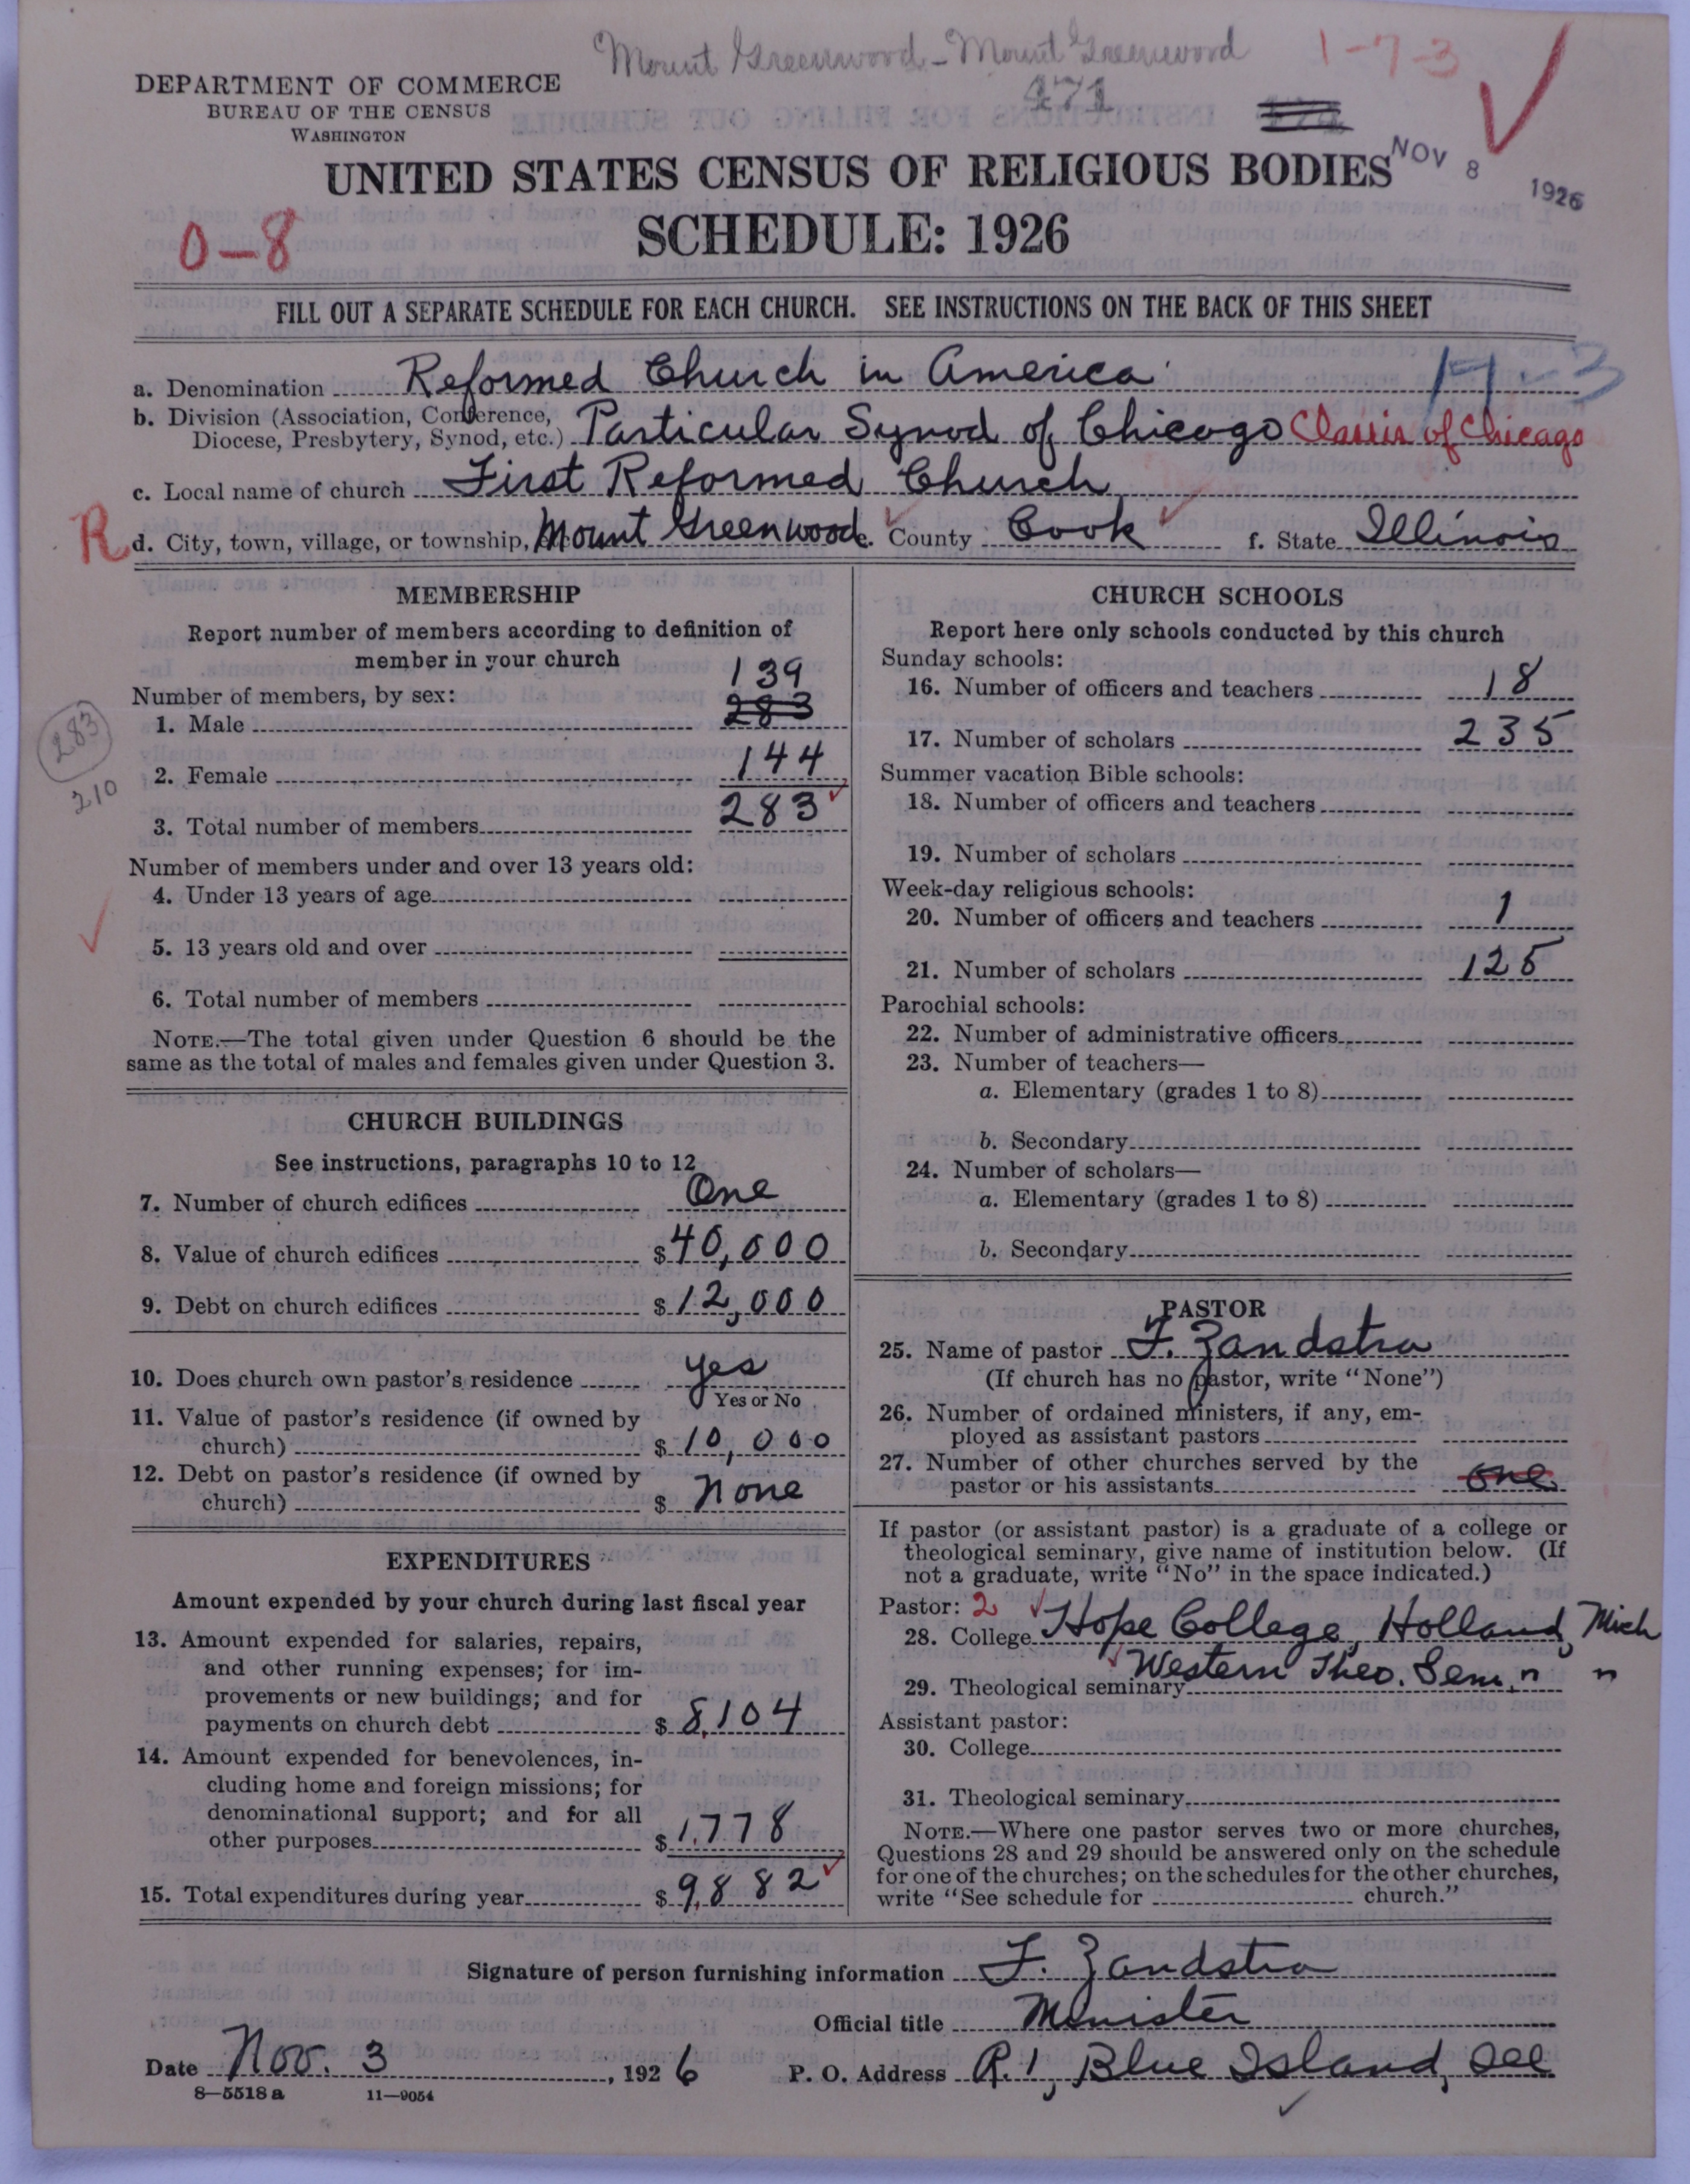 Mount Greenwood - Mount Greenwood
1-7-3
471
DEPARTMENT OF COMMERCE
BUREAU OF THE CENSUS
WASHINGTON
UNITED STATES CENSUS OF RELIGIOUS BODIES
NOV 8 1926
SCHEDULE: 1926
0-8
FILL OUT A SEPARATE SCHEDULE FOR EACH CHURCH. SEE INSTRUCTIONS ON THE BACK OF THIS SHEET
a. Denomination Reformed Church in America
b. Division (Association, Conference,
Diocese, Presbytery, Synod, etc.) Particular Synod of Chicago Classis of Chicago
c. Local name of church First Reformed Church
R d. City, town, village, or township, Mount Greenwood e. County Cook f. State Illinois
MEMBERSHIP
Report number of members according to definition of
member in your church
Number of members, by sex:
139
1. Male 283
283
2. Female 144
210
3. Total number of members 283
Number of members under and over 13 years old:
4. Under 13 years of age
5. 13 years old and over
6. Total number of members
NOTE.—The total given under Question 6 should be the
same as the total of males and females given under Question 3.
CHURCH BUILDINGS
See instructions, paragraphs 10 to 12
7. Number of church edifices One
8. Value of church edifices $ 40,000
9. Debt on church edifices $ 12,000
10. Does church own pastor's residence yes
Yes or No
11. Value of pastor's residence (if owned by
church) $ 10,000
12. Debt on pastor's residence (if owned by
church) $ None
EXPENDITURES
Amount expended by your church during last fiscal year
13. Amount expended for salaries, repairs,
and other running expenses; for im-
provements or new buildings; and for
payments on church debt $ 8,104
14. Amount expended for benevolences, in-
cluding home and foreign missions; for
denominational support; and for all
other purposes $ 1,778
15. Total expenditures during year $ 9,882
CHURCH SCHOOLS
Report here only schools conducted by this church
Sunday schools:
16. Number of officers and teachers 18
17. Number of scholars 235
Summer vacation Bible schools:
18. Number of officers and teachers
19. Number of scholars
Week-day religious schools:
20. Number of officers and teachers 1
21. Number of scholars 125
Parochial schools:
22. Number of administrative officers
23. Number of teachers—
a. Elementary (grades 1 to 8)
b. Secondary
24. Number of scholars—
a. Elementary (grades 1 to 8)
b. Secondary
PASTOR
25. Name of pastor F. Zandstra
(If church has no pastor, write "None")
26. Number of ordained ministers, if any, em-
ployed as assistant pastors
27. Number of other churches served by the
pastor or his assistants one
If pastor (or assistant pastor) is a graduate of a college or
theological seminary, give name of institution below. (If
not a graduate, write "No" in the space indicated.)
Pastor: 2
28. College Hope College, Holland, Mich
29. Theological seminary Western Theo. Sem. " "
Assistant pastor:
30. College
31. Theological seminary
NOTE.—Where one pastor serves two or more churches,
Questions 28 and 29 should be answered only on the schedule
for one of the churches; on the schedules for the other churches,
write "See schedule for church."
Signature of person furnishing information F. Zandstra
Official title Minister
Date Nov. 3, 1926 P. O. Address R. 1, Blue Island, Ill
8—5518 a 11—9054